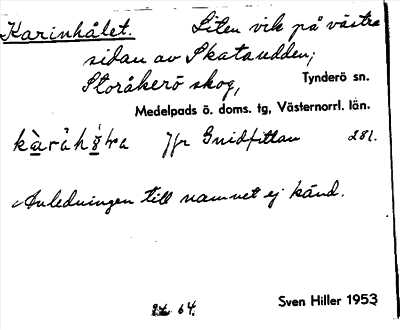 Karinhålet. Liten vik på västra
sidan av Skataudden;
Storåkerö skog, Tynderö sn.
Medelpads ö. doms. tg, Västernorrl. län.
Jfr Gnidfittan 281.
Anledningen till namnet ej känd.
64. Sven Hiller 1953